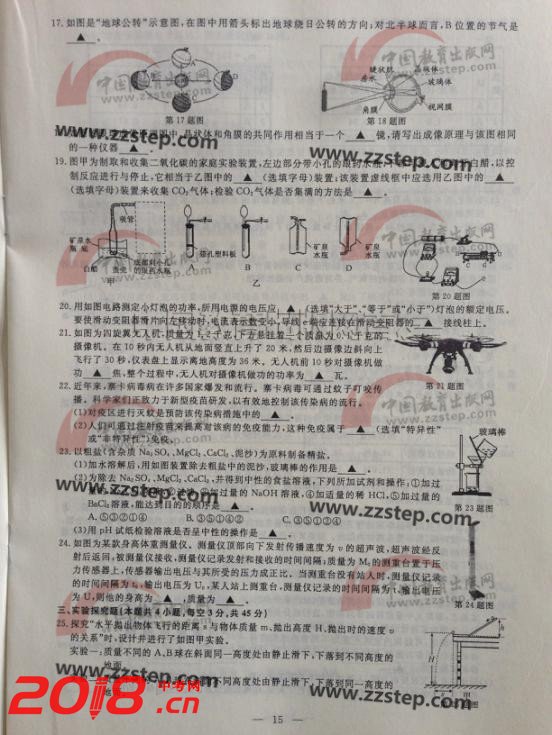 17.如图是“地球公转”示意图,在图中用箭头标出地球绕日公转的方向;对北半球而言,B位置的节气是
▲ 。
D
晶状体
玻璃体
角膜
视网膜
第17题图
第18题图
晶状体和角膜的共同作用相当于一个 ▲ 镜,请写出成像原理与该图相同
的一种仪器 ▲
19.图甲为制取和收集二氧化碳的家庭实验装置,左边部分带小孔的
白醋,以控
制反应进行与停止,它相当于乙图中的 ▲ (选填字母)装置;该装置虚线框中应选用乙图中的 ▲
(选填字母)装置来收集CO₂气体;检验CO₂气体是否集满的方法是 ▲ 。
吸管
矿泉水
瓶底
白醋
蛋壳
底部刺小孔
的取药水瓶
甲
A
多孔塑料板
B
C
矿泉
水瓶
D
矿泉
水瓶
乙
第20题图
20.用如图电路测定小灯泡的功率,所用电源的电压应 ▲ (选填“大于”、“等于”或“小于”)灯泡的额定电压。
要使滑动变阻器滑片向左移动时,电流表示数变小,导线e端应连接在滑动变阻器的 ▲ 接线柱上。
21.如图为四旋翼无人机,质量为1.2千克,下方悬挂着一个质量为0.1千克的
摄像机。在10秒内无人机从地面竖直上升了20米,然后边摄像边斜向上
飞行了30秒,仪表盘上显示离地高度为36米。无人机前10秒对摄像机做
功 ▲ 焦,整个过程中,无人机对摄像机做功的功率为 ▲ 瓦。
第21题图
22.近年来,寨卡病毒病在许多国家爆发和流行。寨卡病毒可通过蚊子叮咬传
播。科学家们正致力于新型疫苗研发,以有效地控制该传染病的流行。
(1)对疫区进行灭蚊是预防该传染病措施中的 ▲ 。
(2)人们可通过注射疫苗来提高对该病的免疫能力,这种免疫属于 ▲ (选填“特异性”
或“非特异性”)免疫。
玻璃棒
23.以粗盐(含杂质Na₂SO₄、MgCl₂、CaCl₂、泥沙)为原料制备精盐。
(1)加水溶解后,用如图装置除去粗盐中的泥沙,玻璃棒的作用是 ▲ 。
(2)为除去Na₂SO₄、MgCl₂、CaCl₂,并得到中性的食盐溶液,下列所加试剂和操作:①加过
加过量的NaOH溶液,④加适量的稀HCl,⑤加过量的
BaCl₂溶液,能达到目的的顺序是 ▲
A.⑤③②①④ B.③⑤①④② C.③⑤①②④
第23题图
(3)用pH试纸检验溶液是否呈中性的操作是 ▲ 。
24.如图为某款身高体重测量仪。测量仪顶部向下发射传播速度为v的超声波,超声波经反
射后返回,被测量仪接收,测量仪记录发射和接收的时间间隔;质量为M₀的测重台置于压
力传感器上,传感器输出电压与其所受的压力成正比。当测重台没有站人时,测量仪记录
的时间间隔为t₀,输出电压为U₀,某人站上测重台,测量仪记录的时间间隔为t,输出电压
为U,则他的身高为 ▲ ,质量为 ▲ 。
第24题图
三、实验探究题(本题共4小题,每空3分,共45分)
25.探究“水平抛出物体飞行的距离s与物体质量m、抛出高度H、抛出时的速度υ
的关系”时,设计并进行了如图甲实验。
实验一:质量不同的A、B球在斜面同一高度处由静止滑下,下落到不同高度的
地面。
不同高度处由静止滑下,下落到同一高度的
H
甲
— 15 —
中国教育出版网
www.zzstep.com
中国教育出版网
www.zzstep.com
www.zzstep.com
www.zzstep.com
中国教育出版网
www.zzstep.com
www.zzstep.com
www.zzstep.com
www.zzstep.com
www.zzstep.com
2018.cn
中考网